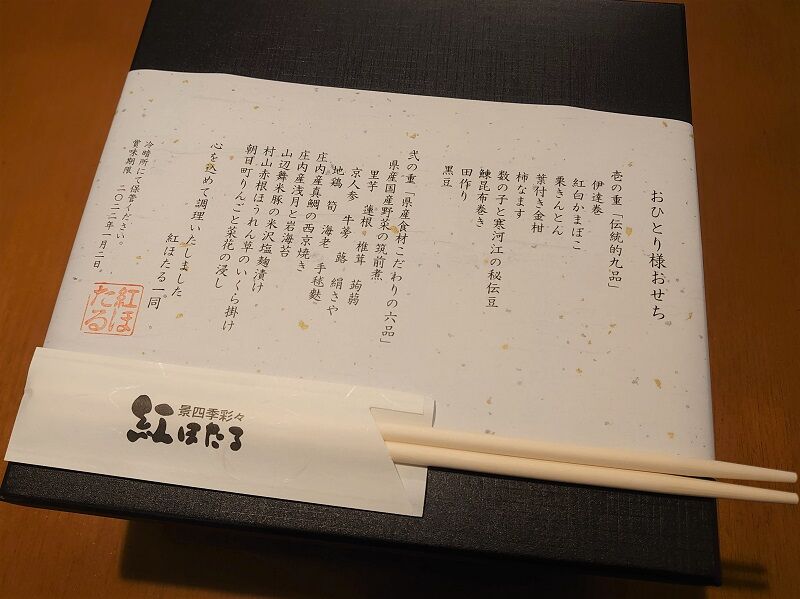 おひとり様おせち
壱の重「伝統的九品」
伊達巻
紅白かまぼこ
栗きんとん
葉付き金柑
柿なます
数の子と寒河江の秘伝豆
鰊昆布巻き
田作り
黒豆
弐の重「県産食材こだわりの六品」
県産国産野菜の筑前煮
里芋 蓮根 椎茸 蒟蒻
京人参 牛蒡 蕗 絹さや
地鶏 筍 海老 手毬麩
庄内産真鯛の西京焼き
庄内産浅月と岩海苔
山辺舞米豚の米沢塩麹漬け
村山赤根ほうれん草のいくら掛け
朝日町りんごと菜花の浸し
心を込めて調理いたしました
紅ほたる一同
冷暗所にて保管ください。
賞味期限 二〇二二年一月二日
紅ほたる
景四季彩々
紅ほたる